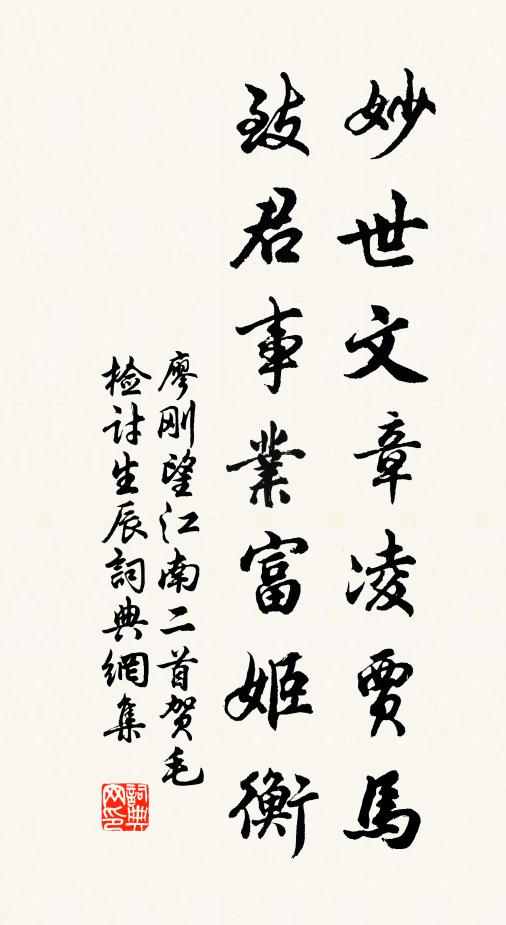 妙世文章凌賈馬
致君事業富姬衡
廖刚望江南二首贺毛
检讨生辰詞典網集
詞典
网印